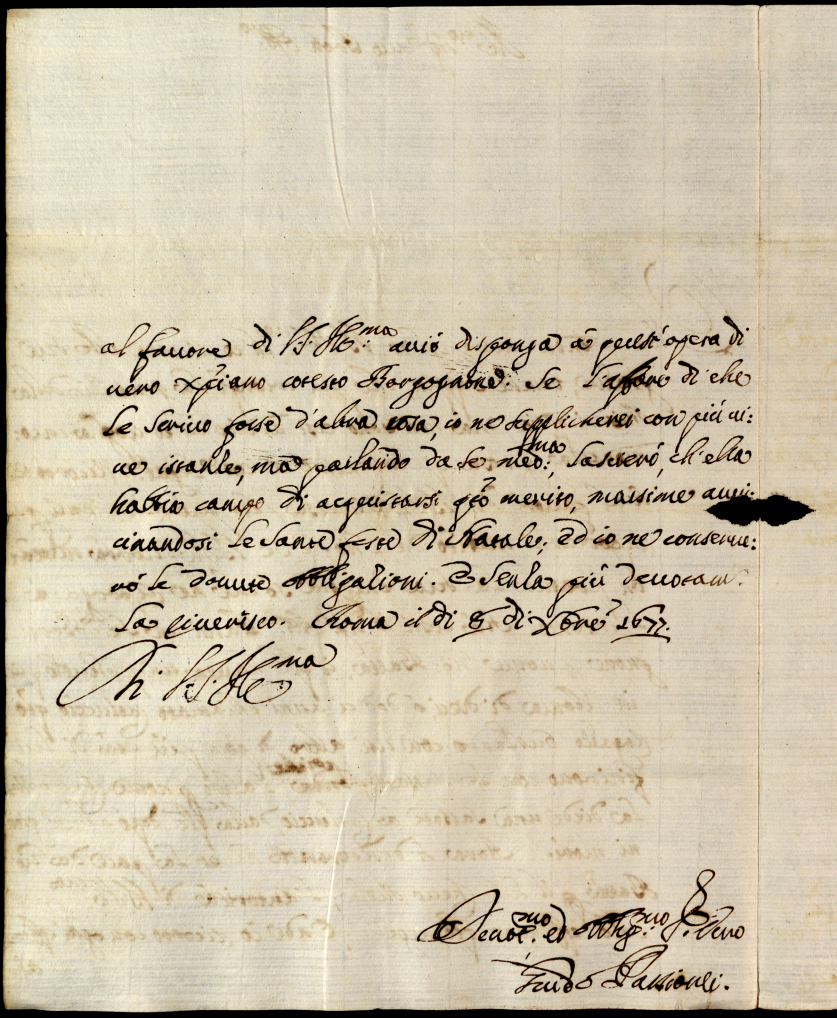 al fauore di V.S. Ill.ma acciò disponga à quest'opera di
uero xp̃iano cotesto Borgognone. Se l'affare di che
le scriuo fosse d'altra cosa, io ne supplicherei con più ui:
ue istanze, ma parlando da se med.mo, lascierò, ch'ella
habbia campo di acquistarsi q̃to merito, massime auui:
cinandosi le Sante feste di Natale; ed io ne conserue:
rò le douute obbligazioni. E senza più deuotam.
La riuerisco. Roma il dì 8 di Xbre 1677.
Di V.S. Ill.ma
Deuot.mo ed Obblig.mo S. Vero
Guido Passionei.